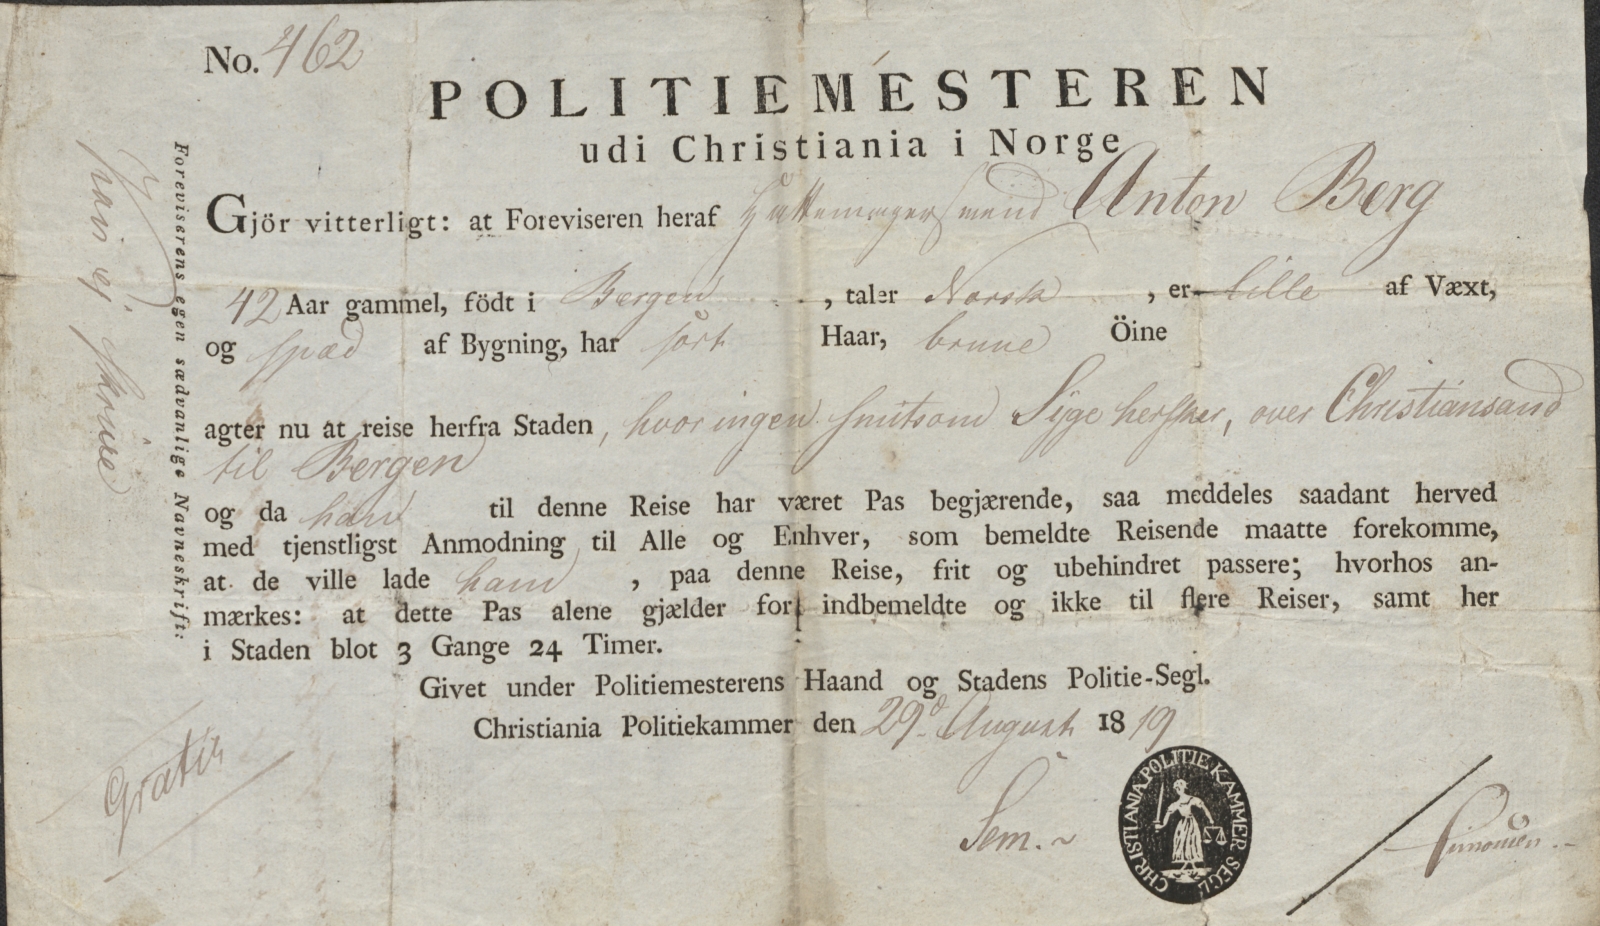 No. 462
POLITIEMESTEREN
udi Christiania i Norge
Gjör vitterligt: at Foreviseren heraf Hattemagersvend Anton Berg
42 Aar gammel, födt i Bergen, taler Norsk, er lille af Væxt,
og spæd af Bygning, har sort Haar, brune Öine
agter nu at reise herfra Staden, hvor ingen smitsom Syge hersker, over Christiansand
til Bergen
og da han til denne Reise har været Pas begjærende, saa meddeles saadant herved
med tjenstligst Anmodning til Alle og Enhver, som bemeldte Reisende maatte forekomme,
at de ville lade ham, paa denne Reise, frit og ubehindret passere; hvorhos an-
mærkes: at dette Pas alene gjælder for indbemeldte og ikke til flere Reiser, samt her
i Staden blot 3 Gange 24 Timer.
Givet under Politiemesterens Haand og Stadens Politie-Segl.
Christiania Politiekammer den 29d. August 1819
Sem.
CHRISTIANIA POLITIE KAMMER SEGL
Gratis
Foreviserens egen sædvanlige Navneskrift:
kan ej skrive